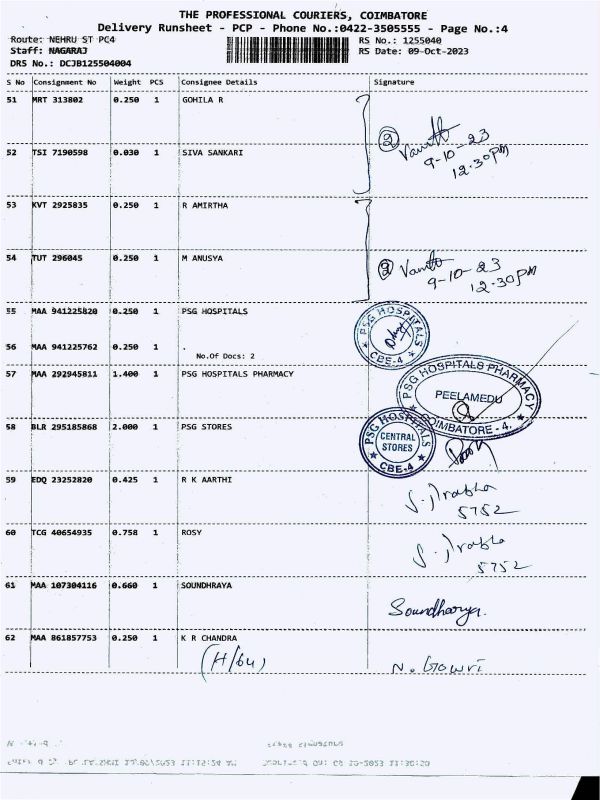 THE PROFESSIONAL COURIERS, COIMBATORE
Delivery Runsheet - PCP - Phone No.:0422-3505555 - Page No.:4
Route: NEHRU ST PC4 RS No.: 1255040
Staff: NAGARAJ RS Date: 09-Oct-2023
DRS No.: DCJB125504004
S No Consignment No Weight PCS Consignee Details Signature
51 MRT 313802 0.250 1 GOHILA R
② 9-10-23
12.30pm
52 TSI 7190598 0.030 1 SIVA SANKARI
53 KVT 2925835 0.250 1 R AMIRTHA
54 TUT 296045 0.250 1 M ANUSYA
② 9-10-23
12.30pm
55 MAA 941225820 0.250 1 PSG HOSPITALS
PSG HOSPITALS
CBE-4
56 MAA 941225762 0.250 1
No.Of Docs: 2
57 MAA 292945811 1.400 1 PSG HOSPITALS PHARMACY
PSG HOSPITALS PHARMACY
PEELAMEDU
COIMBATORE - 4.
58 BLR 295185868 2.000 1 PSG STORES
PSG HOSPITALS
CENTRAL
STORES
CBE-4
59 EDQ 23252820 0.425 1 R K AARTHI
S. Prabha
5752
60 TCG 40654935 0.758 1 ROSY
S. Prabha
5752
61 MAA 107304116 0.660 1 SOUNDHRAYA
Soundharya.
62 MAA 861857753 0.250 1 K R CHANDRA
(H/64) N. Gowri